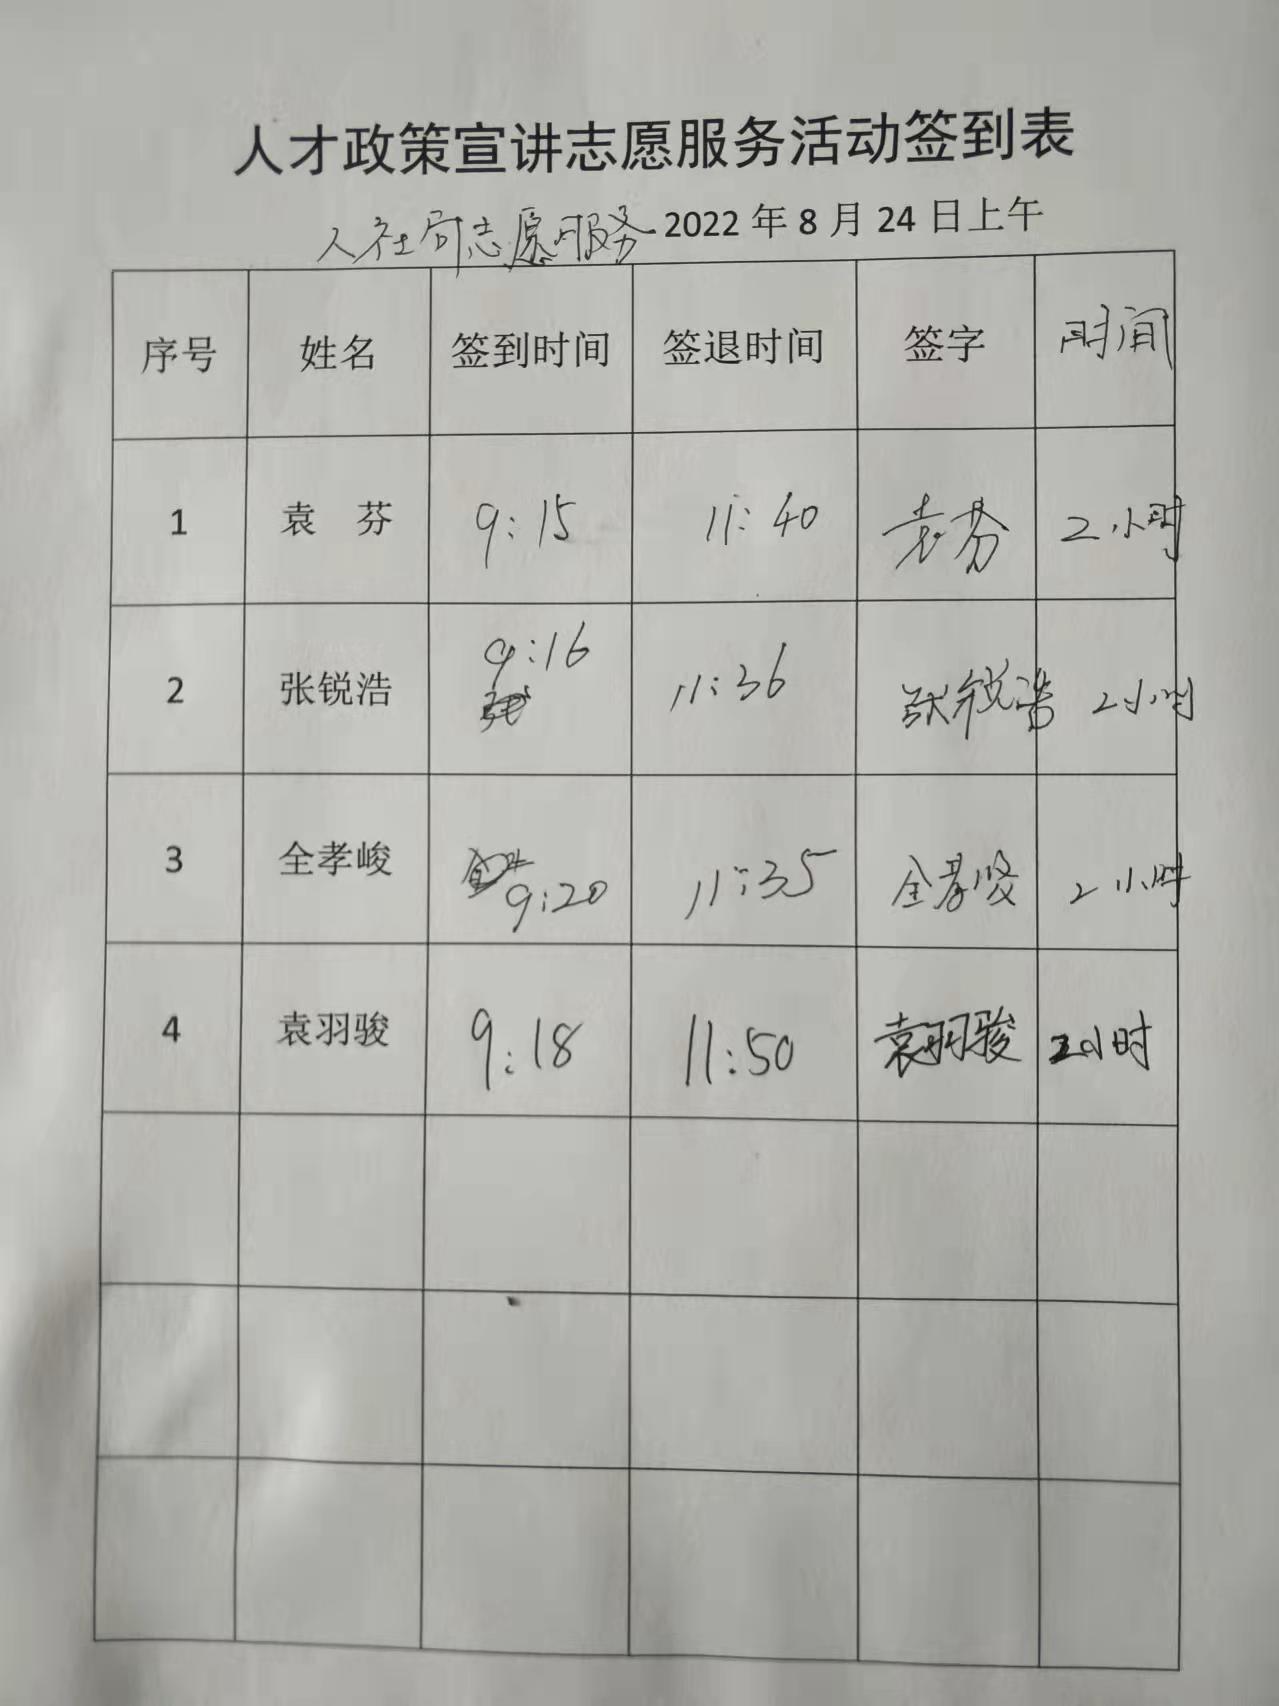 人才政策宣讲志愿服务活动签到表
人社局志愿服务 2022 年 8 月 24 日上午
序号 姓名 签到时间 签退时间 签字 时间
1 袁 芬 9:15 11:40 袁芬 2小时
2 张锐浩 9:16 11:36 张锐浩 2小时
3 全孝峻 9:20 11:35 全孝峻 2小时
4 袁羽骏 9:18 11:50 袁羽骏 2小时